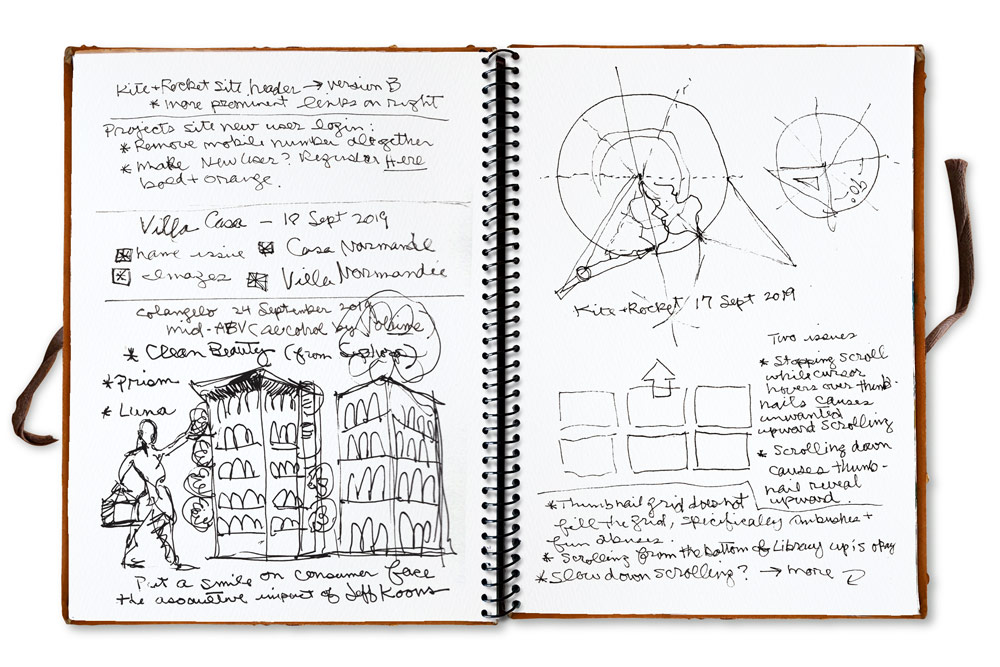 Kite + Rocket site header → version B
* more prominent links on right
Projects site new user login:
* Remove mobile number altogether
* Make New User? Register Here
bold + orange.
Villa Casa – 18 Sept 2019
name issue
Casa Normandie
Images
Villa Normandie
Colangelo 24 September 2019
mid-ABV (alcohol by volume
* Clean Beauty (from Sephora)
* Prism
* Luna
Put a smile on consumer face
the associative impact of Jeff Koons
Kite + Rocket / 17 Sept 2019
Two issues
* Stopping scroll
while cursor
hovers over thumb-
nails causes
unwanted
upward scrolling
* Scrolling down
causes thumb-
nail reveal
upward.
* Thumbnail grid does not
fill the grid, specifically ambushes +
fun abuses.
* Scrolling from the bottom of Library up is okay
* Slow down scrolling? → more